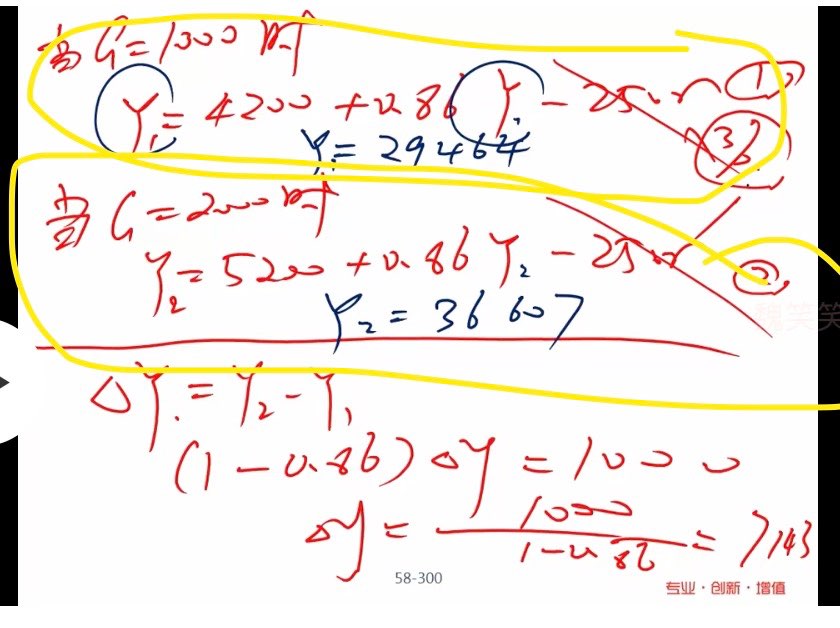 当G=1000时
Y₁=4200+0.86Y₁-250r ①
Y₁=29464 ③
当G=2000时
Y₂=5200+0.86Y₂-250r ②
Y₂=36607
魏笑笑
ΔY.=Y₂-Y₁
(1-0.86)ΔY=1000
ΔY=1000/1-0.86=7143
58-300
专业·创新·增值